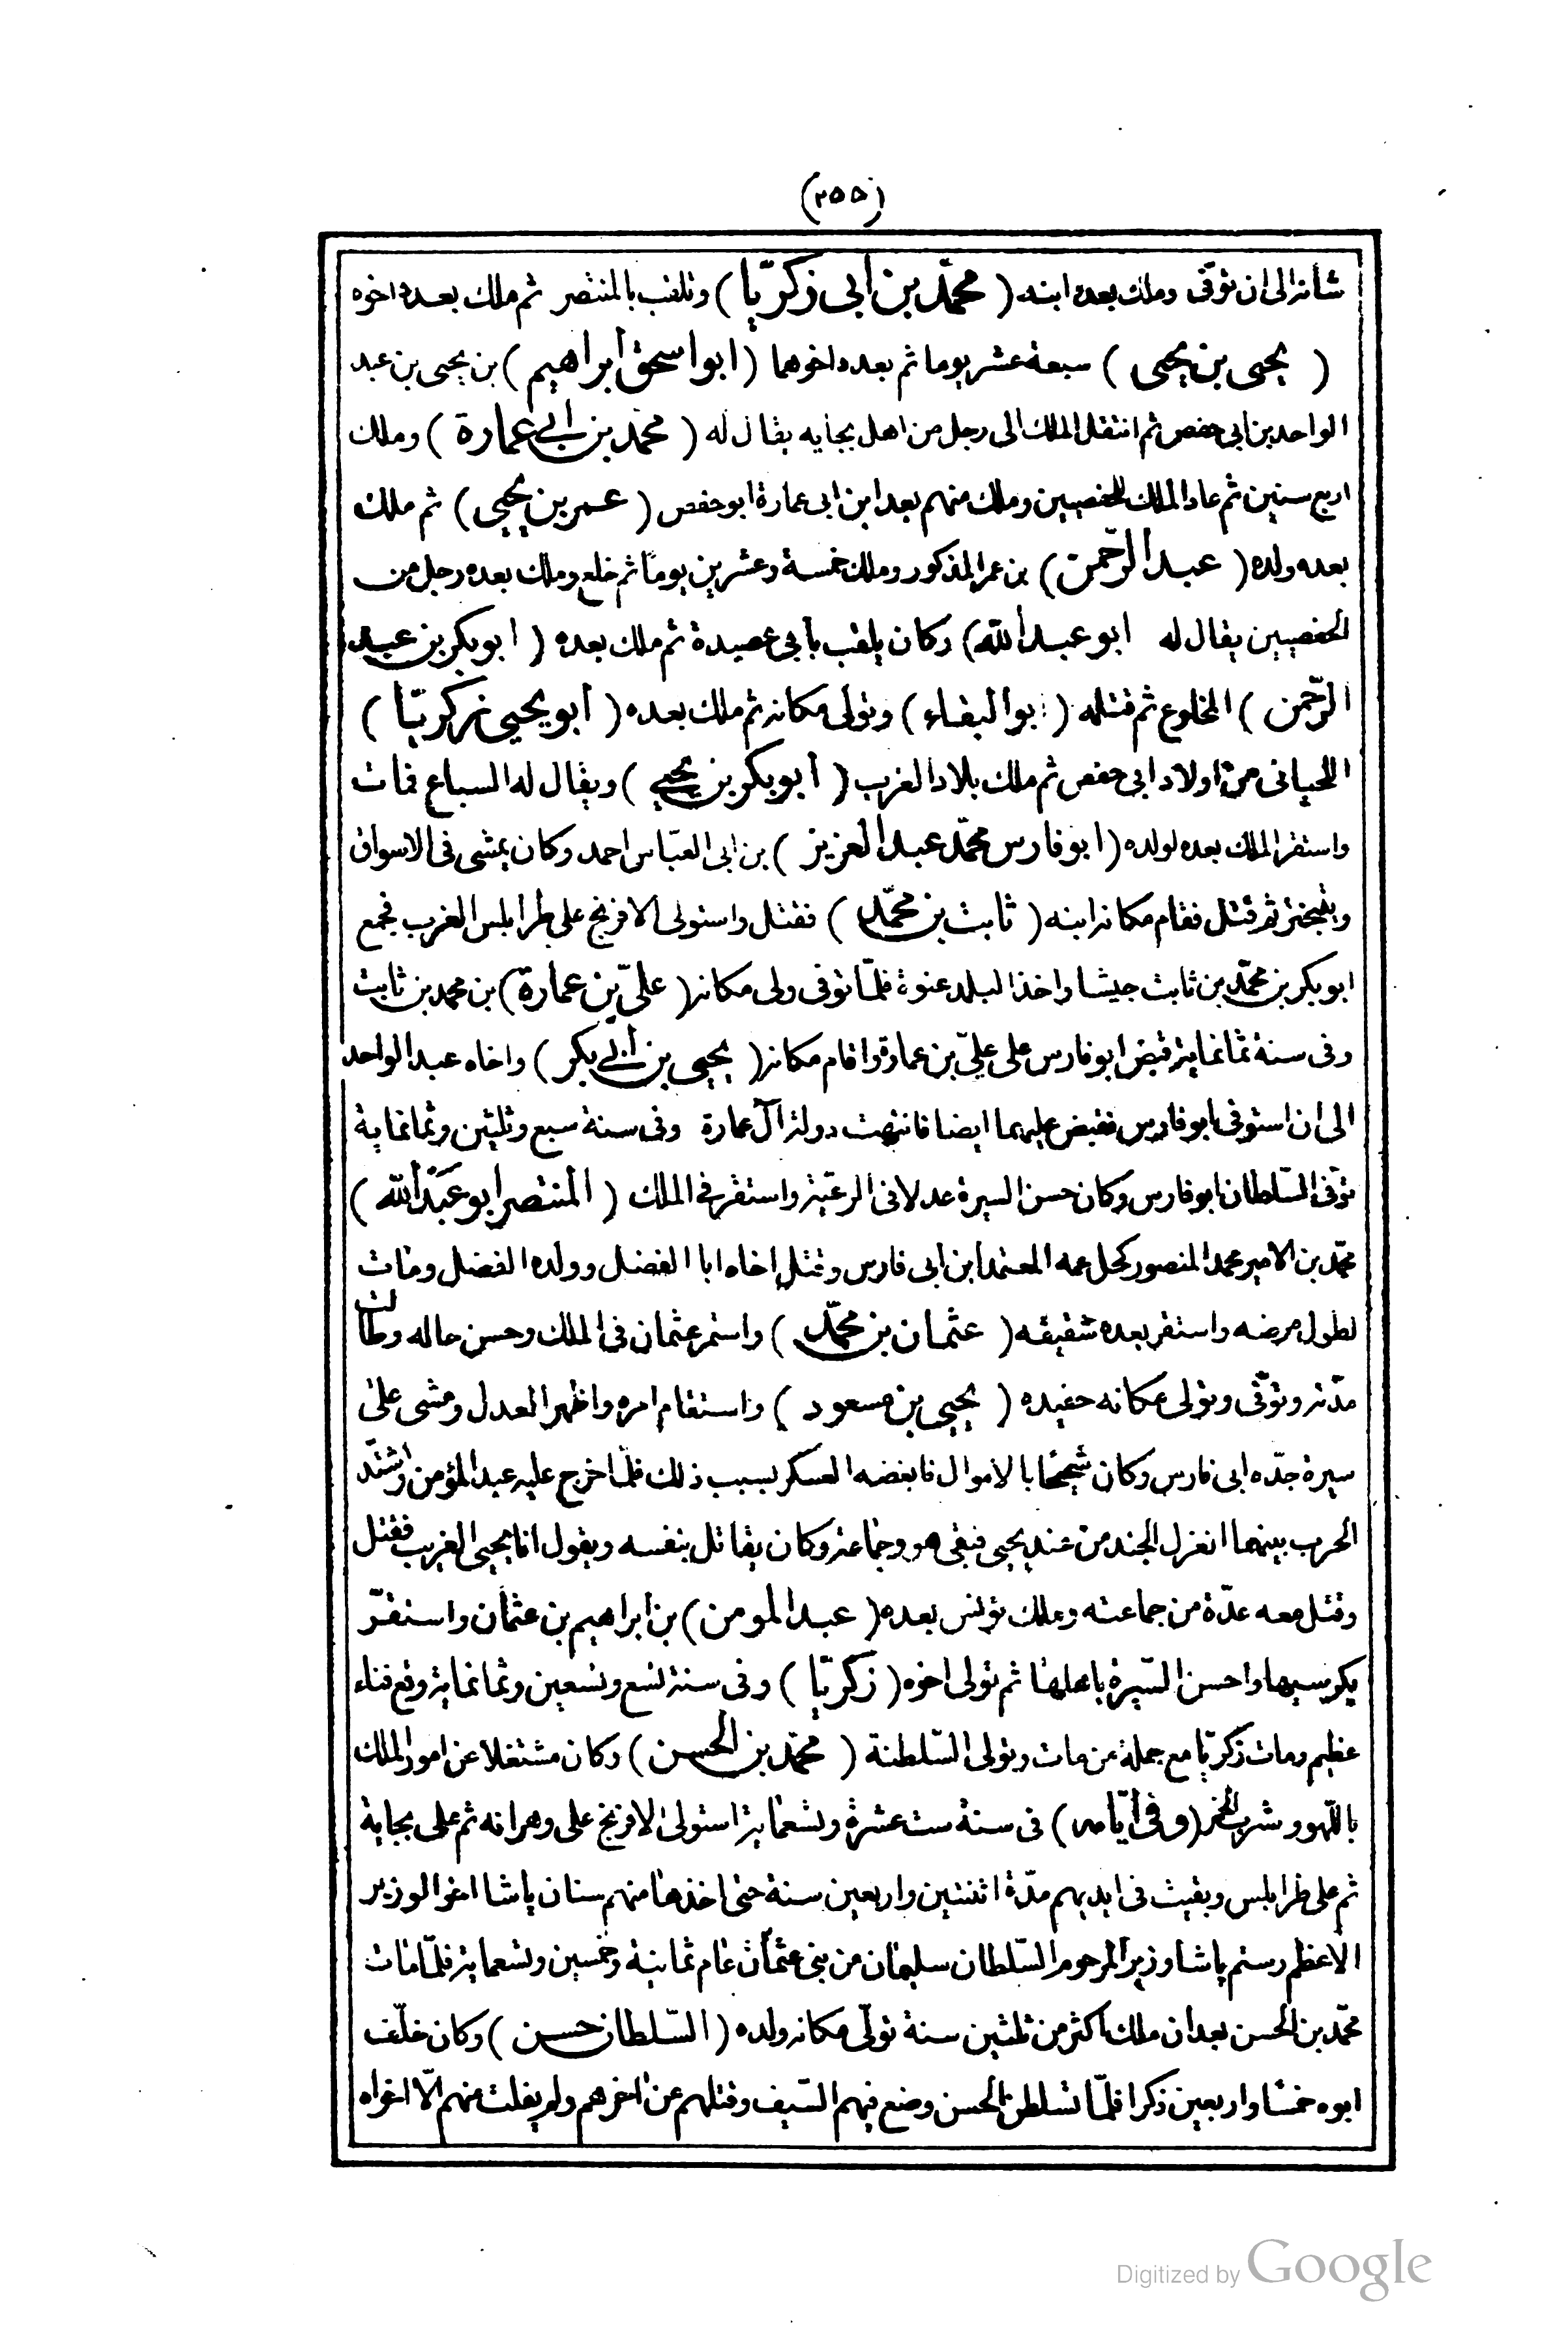 (٢٥٥)
شأنه الى ان توفى وملك بعده ابنه ( محمّد بن ابى زكريّا ) وتلقب بالمنتصر ثم ملك بعده اخوه
( يحيى بن يحيى ) سبعة عشر يوما ثم بعده اخوهما ( ابو اسحق ابراهيم ) بن يحيى بن عبد
الواحد بن ابى حفص ثم انتقل الملك الى رجل من اهل بجايه يقال له ( محمد بن ابى عمارة ) وملك
اربع سنين ثم عاد الملك للحفصيين وملك منهم بعد ابن ابى عمارة ابو حفص ( عمر بن يحيى ) ثم ملك
بعده ولده ( عبد الرّحمن ) بن عمر المذكور وملك خمسة وعشرين يوماً ثم خلع وملك بعده رجل من
الحفصيين يقال له ابو عبد الله) وكان يلقب بأبى عصيدة ثم ملك بعده ( ابو بكر بن عبد
الرّحمن ) المخلوع ثم قتله ( ابو البقاء ) وتولى مكانه ثم ملك بعده ( ابو يحيى زكريّا )
اللحيانى من اولاد ابى حفص ثم ملك بلاد الغرب ( ابو بكر بن يحيى ) ويقال له السباع فمات
واستقر الملك بعده لولده ( ابو فارس محمّد عبد العزيز ) بن ابى العبّاس احمد وكان يمشى فى الاسواق
ويتبختر ثم قتل فقام مكانه ابنه ( ثابت بن محمّد ) فقتل واستولى الافرنج على طرابلس الغرب فجمع
ابو بكر بن محمّد بن ثابت جيشا واخذ البلد عنوة فلمّا توفى ولى مكانه ( علىّ بن عمارة ) بن محمد بن ثابت
وفى سنة ثمانماية قبض ابو فارس على علىّ بن عمارة واقام مكانه ( يحيى بن ابى بكر ) واخاه عبد الواحد
الى ان استوفى ابو فارس فقبض عليهما ايضا فانتهت دولة آل عمارة وفى سنة سبع وثلثين وثمانماية
توفى السّلطان ابو فارس وكان حسن السيرة عدلا فى الرعيّة واستقر فى الملك ( المنتصر ابو عبد الله )
محمّد بن الامير محمد المنصور كحل عمه المعتمد ابن ابى فارس وقتل اخاه ابا الفضل وولده الفضل ومات
لطول مرضه واستقر بعده شقيقه ( عثمان بن محمّد ) واستمر عثمان فى الملك وحسن حاله وطالت
مدّته وتوفّى وتولى مكانه حفيده ( يحيى بن مسعود ) واستقام امره واظهر العدل ومشى على
سيرة جدّه ابى فارس وكان شحيحا بالاموال فابغضه العسكر بسبب ذلك فلمّا خرج عليه عبد المؤمن واشتدّ
الحرب بينهما انغزل الجند من عند يحيى فبقى هو وجماعة وكان يقاتل بنفسه ويقول انا يحيى الغريب فقتل
وقتل معه عدّة من جماعته وملك تونس بعده ( عبد المومن ) بن ابراهيم بن عثمان واستقرّ
بكرسيها واحسن السّيرة باهلها ثم تولى اخوه ( زكريّا ) وفى سنة تسع وتسعين وثمانماية وقع فناء
عظيم ومات زكريّا مع جملة من مات وتولى السّلطنة ( محمّد بن الحسن ) وكان مشتغلا عن امور الملك
باللّهو وشرب الخمر ( وفى ايّامه ) فى سنة ست عشرة وتسعماية استولى الافرنج على وهرانه ثم على بجاية
ثم على طرابلس وبقيت فى ايديهم مدّة اثنتين واربعين سنة حتى اخذها منهم سنان پاشا اخو الوزير
الاعظم رستم پاشا وزير المرحوم السّلطان سليمان من بنى عثمان عام ثمانية وخمسين وتسعماية فلمّا مات
محمّد بن الحسن بعد ان ملك اكثر من ثلثين سنة تولّى مكانه ولده ( السّلطان حسن ) وكان خلّف
ابوه خمسًا واربعين ذكرا فلمّا تسلطن الحسن وضع فيهم السّيف وقتلهم عن اخرهم ولم يفلت منهم الّا اخواه
Digitized by Google